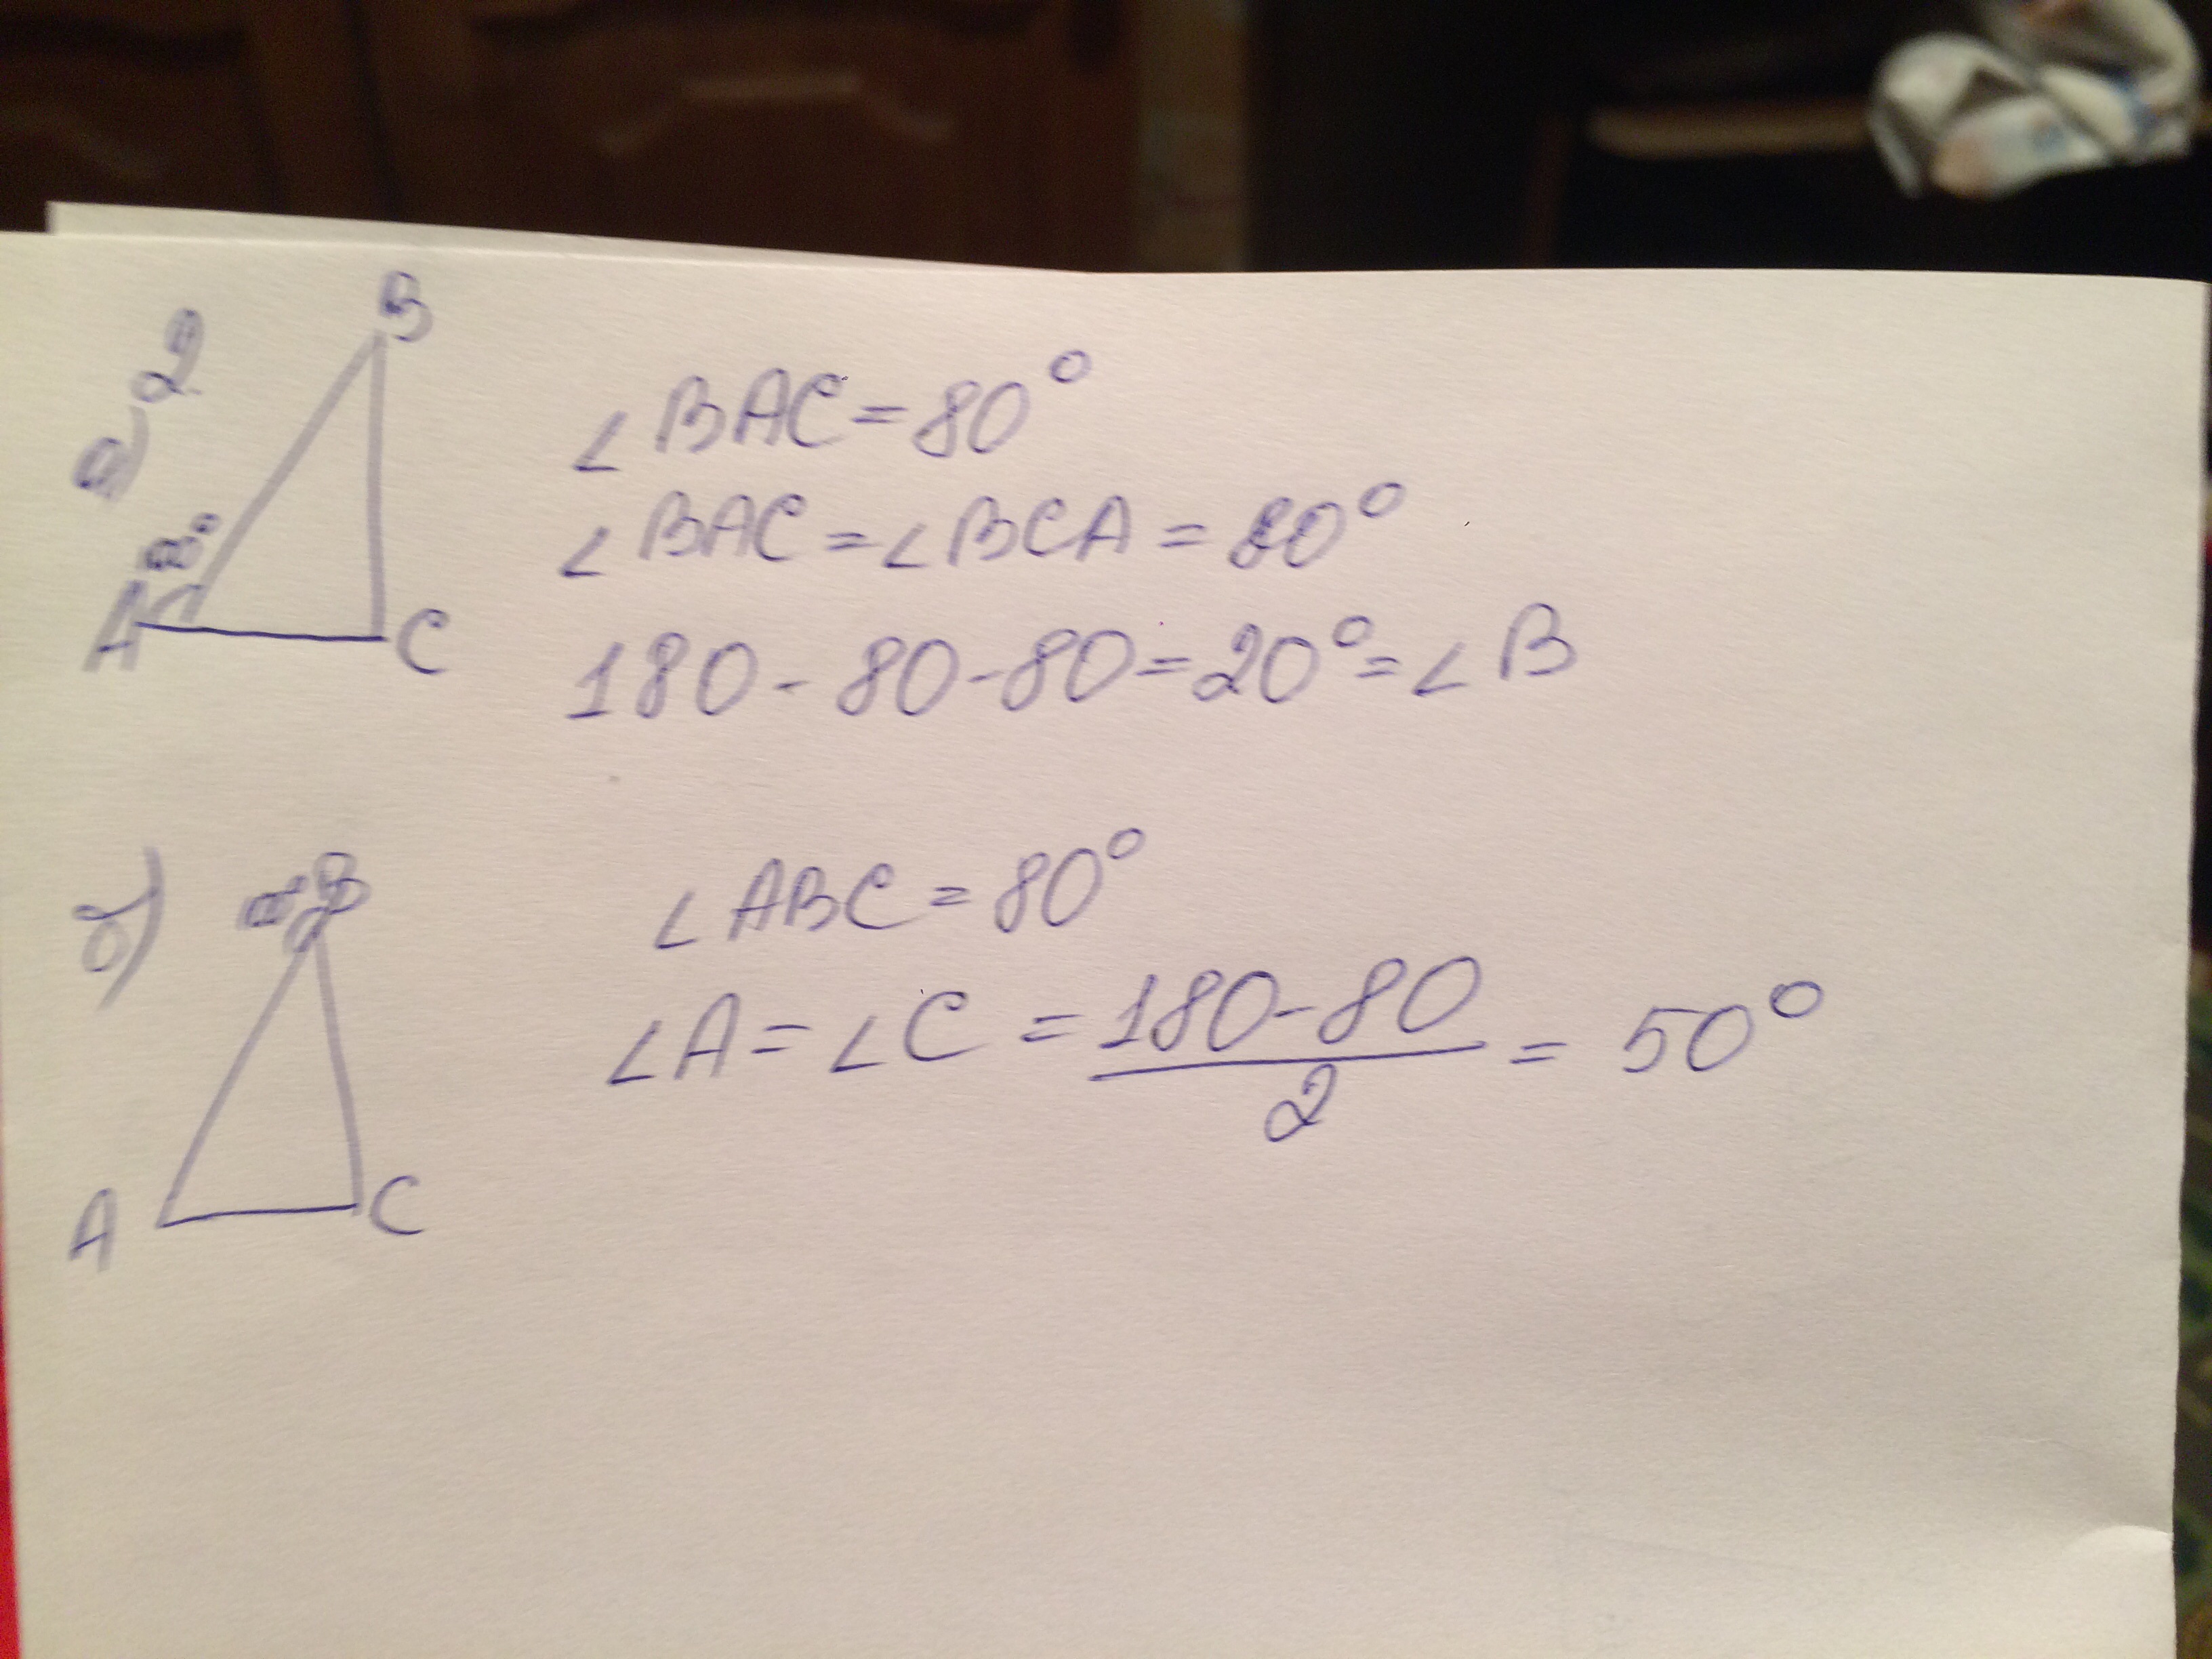 2
а)
B
80°
A
C
∠BAC = 80°
∠BAC = ∠BCA = 80°
180 - 80 - 80 = 20° = ∠B
б)
80°
B
A
C
∠ABC = 80°
∠A = ∠C = 180-80/2 = 50°